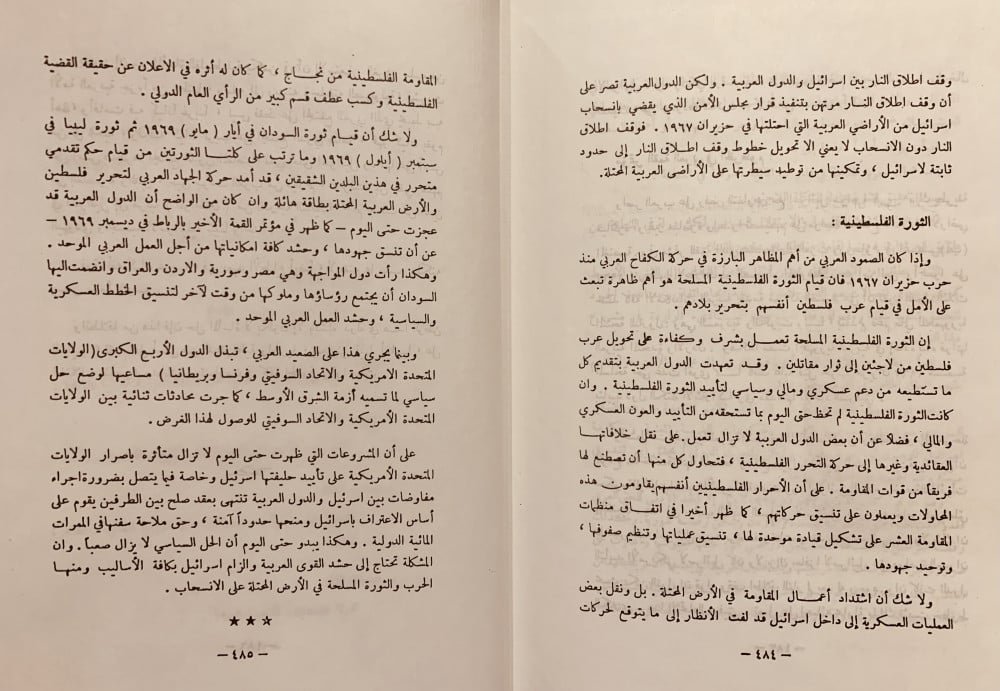 وقف اطلاق النار بين اسرائيل والدول العربية . ولكن الدول العربية تصر على
أن وقف اطلاق النار مرتهن بتنفيذ قرار مجلس الأمن الذي يقضي بانسحاب
اسرائيل من الأراضي العربية التي احتلتها في حزيران ١٩٦٧ . فوقف اطلاق
النار دون الانسحاب لا يعني الا تحويل خطوط وقف اطلاق النار إلى حدود
ثابتة لاسرائيل ، وتمكينها من توطيد سيطرتها على الأراضي العربية المحتلة.
الثورة الفلسطينية :
وإذا كان الصمود العربي من أهم المظاهر البارزة في حركة الكفاح العربي منذ
حرب حزيران ١٩٦٧ فان قيام الثورة الفلسطينية المسلحة هو أهم ظاهرة تبعث
على الأمل في قيام عرب فلسطين أنفسهم بتحرير بلادهم .
إن الثورة الفلسطينية المسلحة تعمل بشرف وكفاءة على تحويل عرب
فلسطين من لاجئين إلى ثوار مقاتلين . وقد تعهدت الدول العربية بتقديم كل
ما تستطيعه من دعم عسكري ومالي وسياسي لتأييد الثورة الفلسطينية . وان
كانت الثورة الفلسطينية لم تحظ حتى اليوم بما تستحقه من التأييد والعون العسكري
والمالي ، فضلاً عن أن بعض الدول العربية لا تزال تعمل . على نقل خلافاتها
العقائدية وغيرها إلى حركة التحرر الفلسطينية ، فتحاول كل منها أن تصطنع لها
فريقاً من قوات المقاومة . على أن الأحرار الفلسطينيين أنفسهم يقاومون هذه
المحاولات ويعملون على تنسيق حركاتهم ، كما ظهر أخيرا في اتفاق منظمات
المقاومة العشر على تشكيل قيادة موحدة لها ، تنسيق عملياتها وتنظيم صفوفها ،
وتوحيد جهودها .
ولا شك أن اشتداد أعمال المقاومة في الأرض المحتلة . بل ونقل بعض
العمليات العسكرية إلى داخل اسرائيل قد لفت الأنظار إلى ما يتوقع لحركات
— ٤٨٤ —
المقاومة الفلسطينية من نجاح ، كما كان له أثره في الاعلان عن حقيقة القضية
الفلسطينية وكسب عطف قسم كبير من الرأي العام الدولي .
ولا شك أن قيام ثورة السودان في أيار ( مايو ) ١٩٦٩ ثم ثورة ليبيا في
سبتمبر ( أيلول ) ١٩٦٩ وما ترتب على كلتا الثورتين من قيام حكم تقدمي
متحرر في هذين البلدين الشقيقين ، قد أمد حركة الجهاد العربي لتحرير فلسطين
والأرض العربية المحتلة بطاقة هائلة وان كان من الواضح أن الدول العربية قد
عجزت حتى اليوم – كما ظهر في مؤتمر القمة الأخير بالرباط في ديسمبر ١٩٦٩ –
عن أن تنسق جهودها ، وحشد كافة امكانياتها من أجل العمل العربي الموحد .
وهكذا رأت دول المواجهة وهي مصر وسورية والاردن والعراق وانضمت اليها
السودان أن يجتمع رؤساؤها وملوكها من وقت لآخر لتنسيق الخطط العسكرية
والسياسية ، وحشد العمل العربي الموحد .
وبينما يجري هذا على الصعيد العربي ، تبذل الدول الأربع الكبرى (الولايات
المتحدة الامريكية والاتحاد السوفيتي وفرنسا وبريطانيا ) مساعيها لوضع حل
سياسي لما تسميه أزمة الشرق الأوسط ، كما جرت محادثات ثنائية بين الولايات
المتحدة الأمريكية والاتحاد السوفيتي للوصول لهذا الغرض .
على أن المشروعات التي ظهرت حتى اليوم لا تزال متأثرة باصرار الولايات
المتحدة الأمريكية على تأييد حليفتها اسرائيل وخاصة فيما يتصل بضرورة اجراء
مفاوضات بين اسرئيل والدول العربية تنتهى بعقد صلح بين الطرفين يقوم على
أساس الاعتراف باسرائيل ومنحها حدوداً آمنة ، وحق ملاحة سفنها في الممرات
المائية الدولية . وهكذا يبدو حتى اليوم أن الحل السياسي لا يزال صعباً . وان
المشكلة تحتاج إلى حشد القوى العربية والزام اسرائيل بكافة الأساليب ومنها
الحرب والثورة المسلحة في الأرض المحتلة على الانسحاب .
★ ★ ★
— ٤٨٥ —